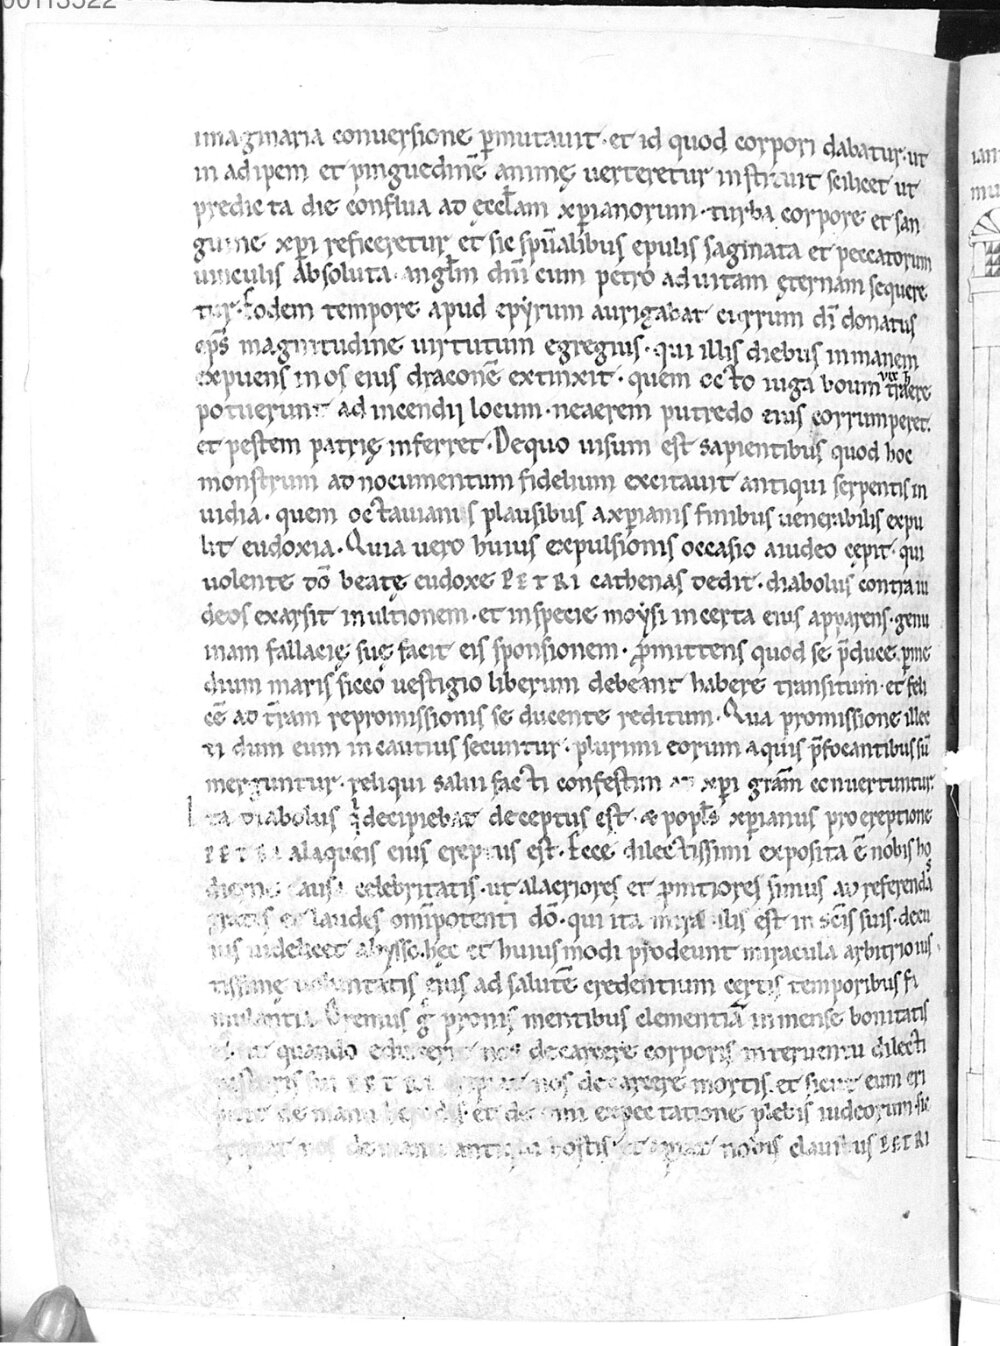 00113522
imaginaria conuersione p̄mutauit · et id quod corpori dabatur · ut
in adipem et pinguedinē animę uerteretur instituit scilicet ut
predicta die conflua ad ęccl̄am xp̄ianorum · turba corpore et san
guine xp̄i reficeretur et sic sp̄ualibus epulis saginata et peccatorum
uinculis absoluta · angl̄m dn̄i cum petro ad uitam ęternam sequere
tur · Eodem tempore apud epyrum aurigabat currum dī donatus
ep̄s magnitudine uirtutum egregius · qui illis diebus inmanem
expuens in os eius draconē extinxit · quem octo iuga boum uix trahere
potuerunt ad incendij locum · ne aerem putredo eius corrumperet
et pestem patrię inferret · De quo uisum est sapientibus quod hoc
monstrum ad nocumentum fidelium excitauit antiqui serpentis in
uidia · quem octauianus plausibus a xp̄ianis finibus uenerabilis expu
lit eudoxia · Quia uero huius expulsionis occasio a iudeo cępit · qui
uolente dō beatę eudoxe PETRI cathenas dedit · diabolus contra iu
deos exarsit in ultionem · et in specie moysi in certa eius apparens · genu
inam fallacię suę facit eis sponsionem · p̄mittens quod se p̄duce p̄ me
dium maris sicco uestigio liberum debeant habere transitum · et feli
cē ad t̄ram repromissionis se ducente reditum · Qua promissione illec
ti dum eum incautius secuntur · plurimi eorum aquis p̄focantibus sū
merguntur · reliqui salui facti confestim ad xp̄i gr̄am conuertuntur
Ita diabolus q̇ decipiebat deceptus est · & popl̄s xp̄ianus pro ereptione
PETRI a laqueis eius ereptus est · Ecce dilectissimi exposita ē nobis ho
diernę causa celebritatis · ut alacriores et p̄mtiores simus ad referendas
grates et laudes omīpotenti dō · qui ita mirabilis est in sc̄is suis · de cu
ius uidelicet abysso · hęc et huiusmodi prodeunt miracula arbitrio ius
tissimę uoluntatis eius ad salutē credentium certis temporibus fa
mulantia · Oremus g̊ pronis mentibus clementiā inmense bonitatis
quando nos de carcere corporis interuentu dilecti
PETRI nos de carcere mortis · et sicut eum eri
de manu herodis · et de omni expectatione plebis iudeorum · sic
nos de manu antiqui hostis · et aperiat nobis clauibus PETRI